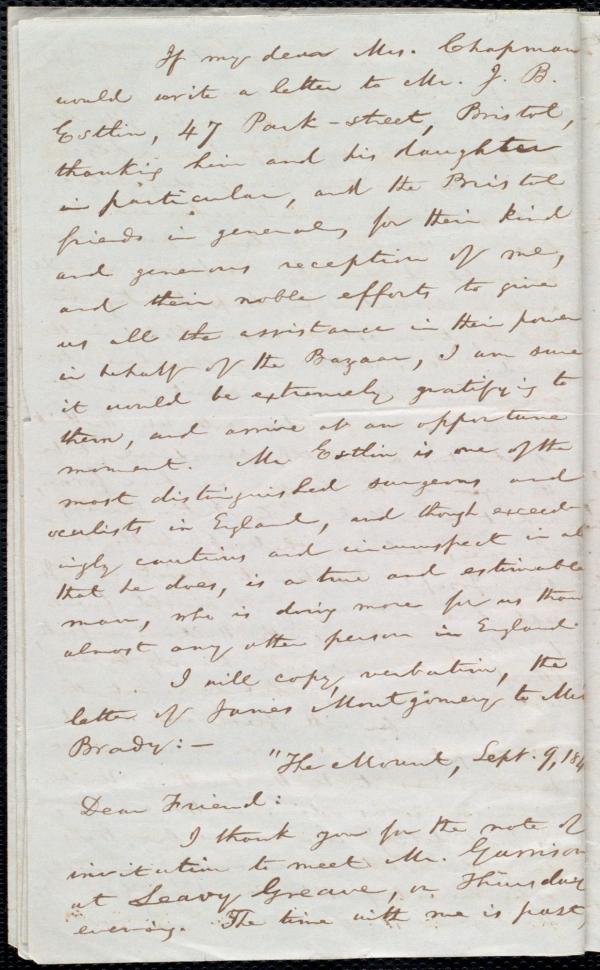 If my dear Mrs. Chapman
would write a letter to Mr. J. B.
Estlin, 47 Park-street, Bristol,
thanking him and his daughter
in particular, and the Bristol
friends in general, for their kind
and generous reception of me,
and their noble efforts to give
us all the assistance in their power
in behalf of the Bazaar, I am sure
it would be extremely gratifying to
them, and arrive at an opportune
moment. Mr Estlin is one of the
most distinguished surgeons and
oculists in England, and though exceed-
ingly cautious and circumspect in al
that he does, is a true and estimable
man, who is doing more for us than
almost any other person in England.
I will copy, verbatim, the
letter of James Montgomery to Mrs
Brady:—
"The Mount, Sept. 9, 184
Dear Friend:
I thank you for the note of
invitation to meet Mr. Garrison
at Leavy Greave, on Thursday
evening. The time with me is past,